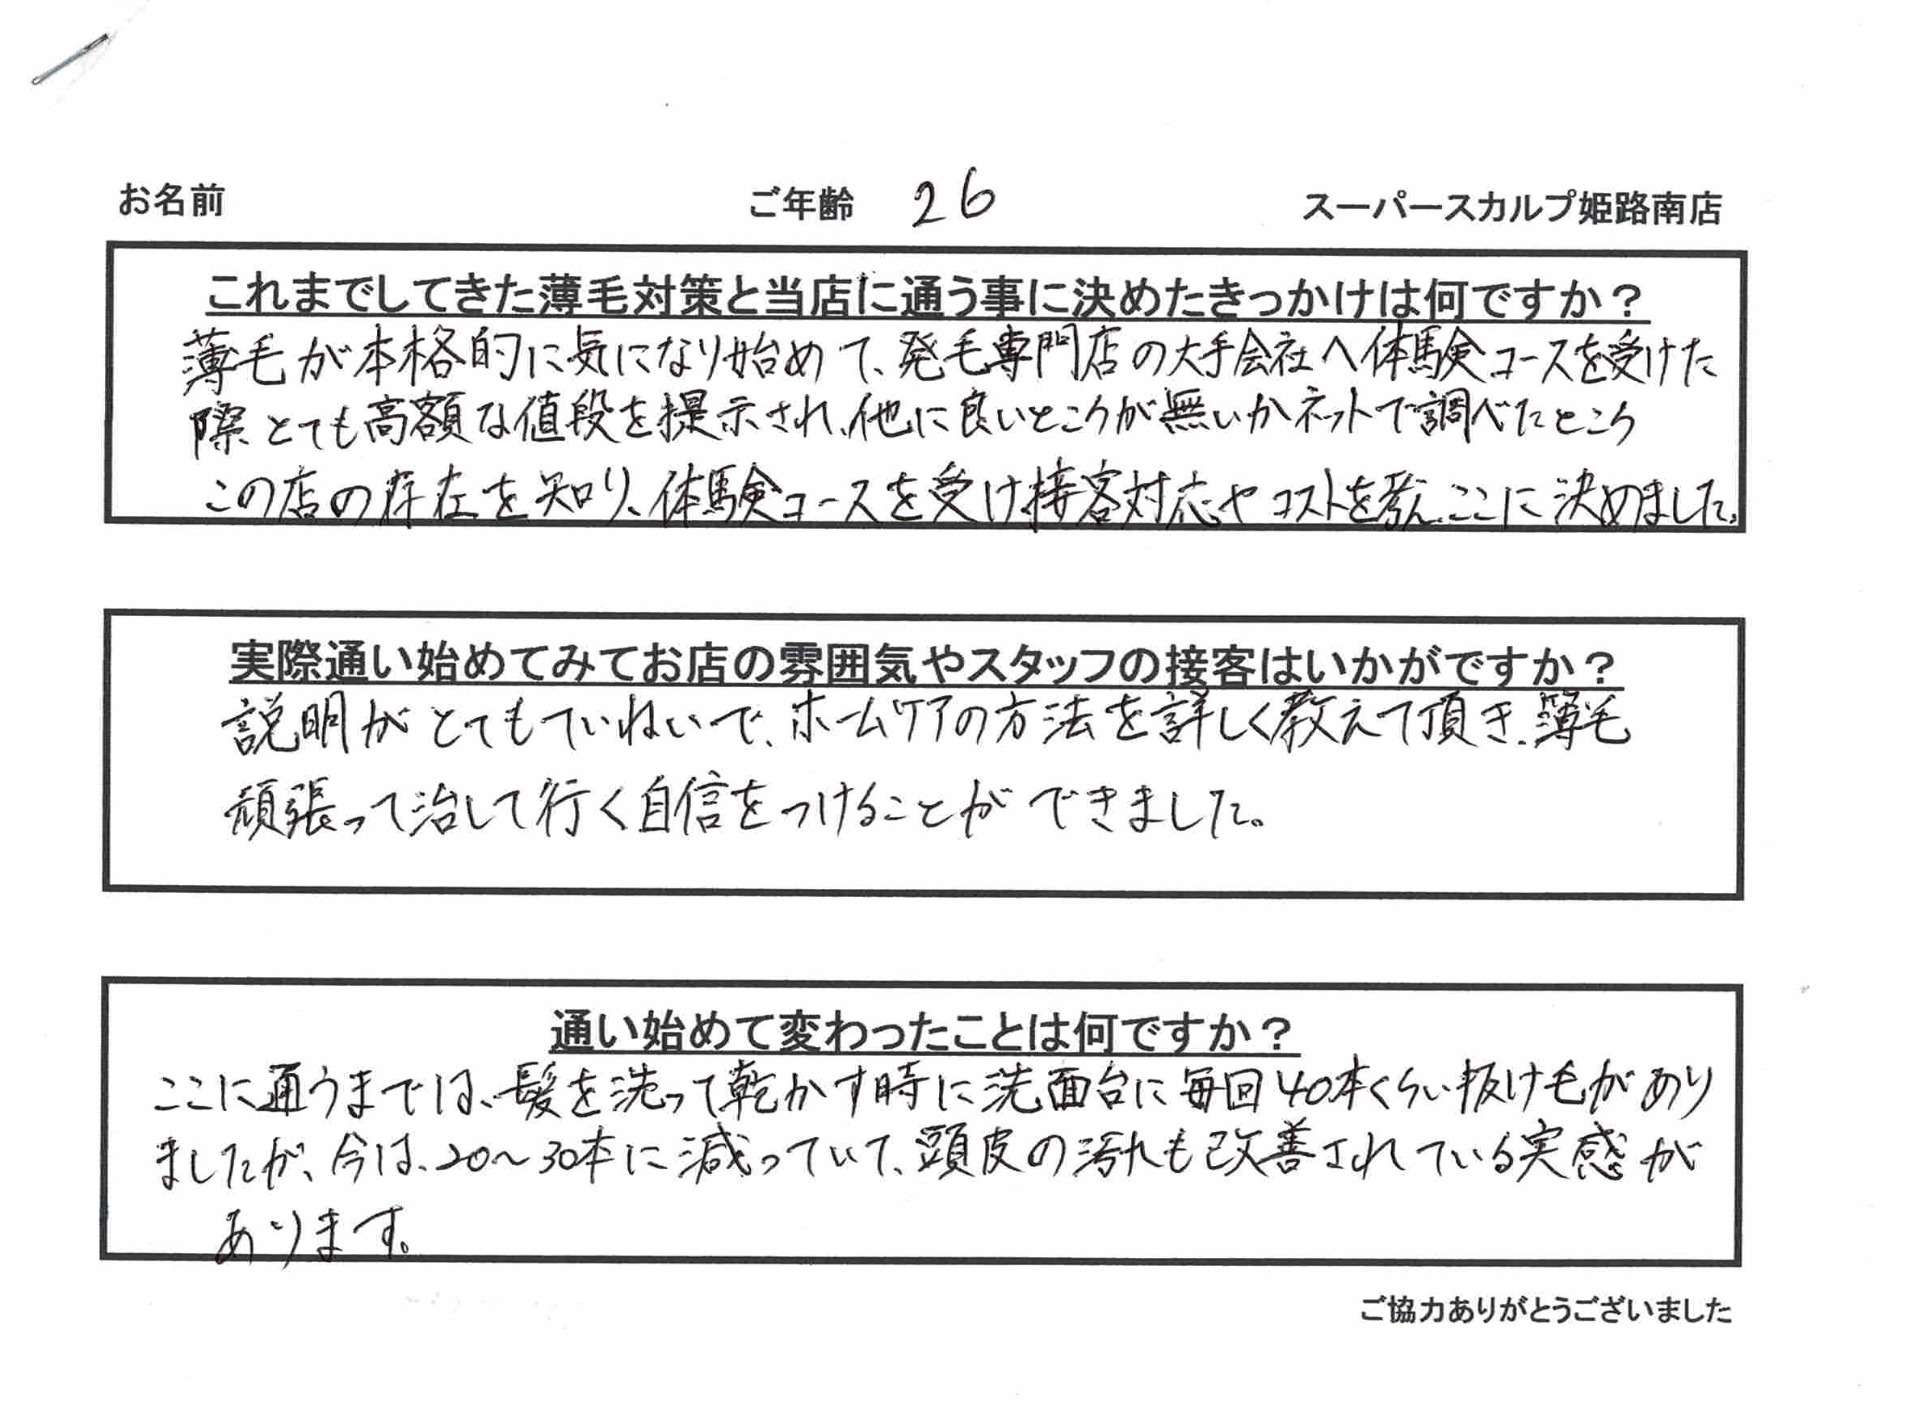 お名前 ご年齢 26 スーパースカルプ姫路南店
これまでしてきた薄毛対策と当店に通う事に決めたきっかけは何ですか？
薄毛が本格的に気になり始めて、発毛専門店の大手会社へ体験コースを受けた
際とても高額な値段を提示され、他に良いところが無いかネットで調べたところ
この店の存在を知り、体験コースを受け接客対応やコストを考え、ここに決めました。
実際通い始めてみてお店の雰囲気やスタッフの接客はいかがですか？
説明がとてもていねいで、ホームケアの方法を詳しく教えて頂き、薄毛
頑張って治して行く自信をつけることができました。
通い始めて変わったことは何ですか？
ここに通うまでは、髪を洗って乾かす時に洗面台に毎回40本くらい抜け毛があり
ましたが、今は、20〜30本に減っていて、頭皮の汚れも改善されている実感が
あります。
ご協力ありがとうございました